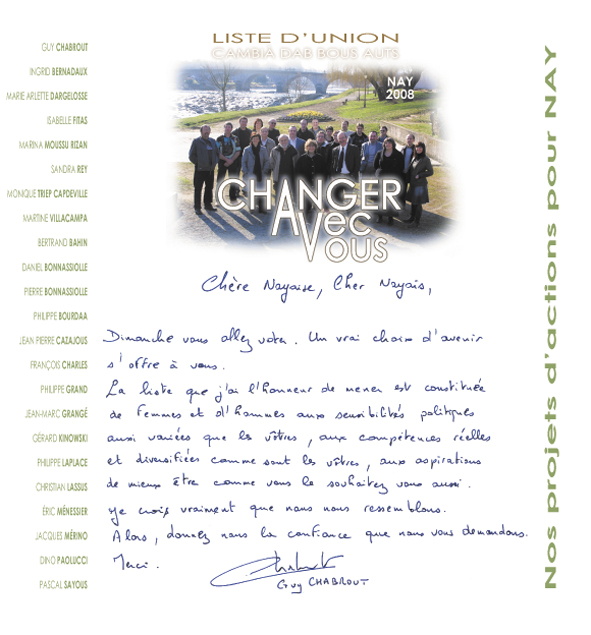 LISTE D'UNION
CAMBIÀ DAB BOUS AUTS
NAY
2008
CHANGER
AVec
VOUS
GUY CHABROUT
INGRID BERNADAUX
MARIE ARLETTE DARGELOSSE
ISABELLE FITAS
MARINA MOUSSU RIZAN
SANDRA REY
MONIQUE TRIEP CAPDEVILLE
MARTINE VILLACAMPA
BERTRAND BAHIN
DANIEL BONNASSIOLLE
PIERRE BONNASSIOLLE
PHILIPPE BOURDAA
JEAN PIERRE CAZAJOUS
FRANÇOIS CHARLES
PHILIPPE GRAND
JEAN-MARC GRANGÉ
GÉRARD KINOWSKI
PHILIPPE LAPLACE
CHRISTIAN LASSUS
ÉRIC MÉNESSIER
JACQUES MÉRINO
DINO PAOLUCCI
PASCAL SAYOUS
Chère Nayaise, Cher Nayais,
Dimanche vous allez voter. Un vrai choix d'avenir
s'offre à vous.
La liste que j'ai l'honneur de mener est constituée
de femmes et d'hommes aux sensibilités politiques
aussi variées que les vôtres, aux compétences réelles
et diversifiées comme sont les vôtres, aux aspirations
de mieux être comme vous le souhaitez vous aussi.
Je crois vraiment que nous nous ressemblons.
Alors, donnez nous la confiance que nous vous demandons.
Merci.
Chabrout
Guy CHABROUT
Nos projets d'actions pour NAY